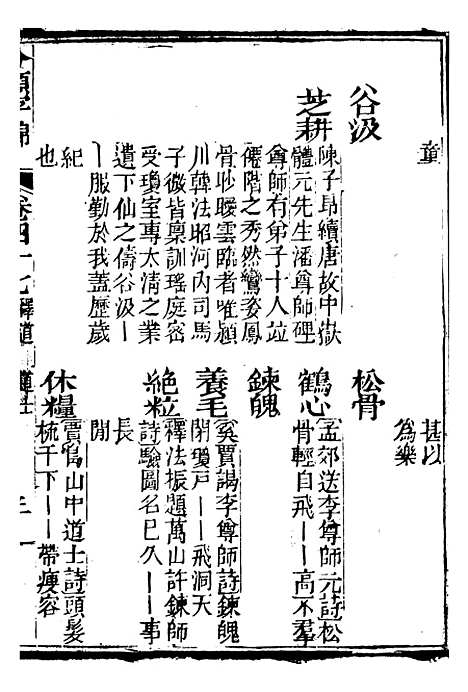 童
谷汲
芝耕 陳子昂續唐故中嶽
體元先生潘尊師碑
尊師有弟子十人竝
僊階之秀然鸞姿鳳
骨眇曖雲臨者唯潁
川韓法昭河內司馬
子微皆稟訓瑤庭密
受瓊室專太清之業
遺下仙之儔谷汲丨
丨服勤於我蓋歷歲
紀
也
甚以
為樂
松骨
鶴心 孟郊送李尊師元詩松
骨輕自飛丨丨高不羣
鍊魄
養毛 奚賈謁李尊師詩鍊魄
閉瓊戶丨丨飛洞天
絕粒 釋法振題萬山許鍊師
詩驗圖名已久丨丨事
長
閒
休糧 賈島山中道士詩頭髮
梳千下丨丨帶瘦容
卷四十七 釋道 道士